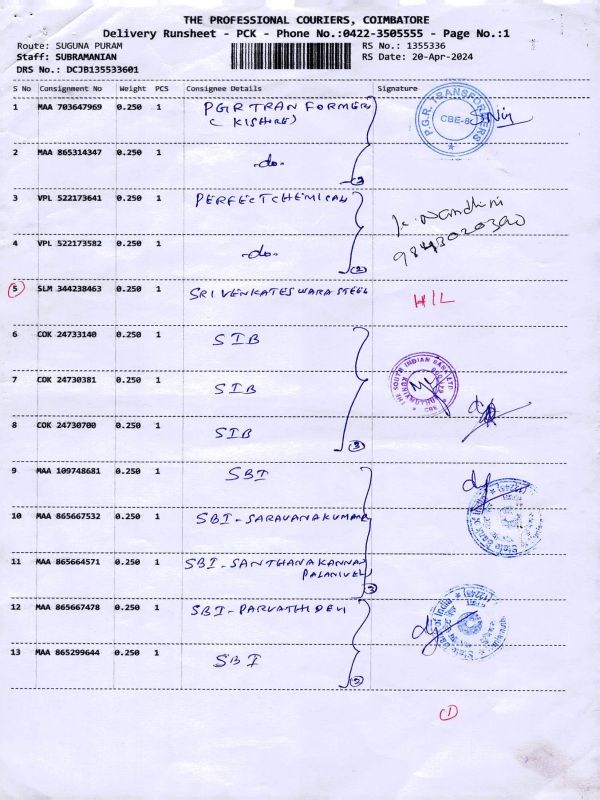 THE PROFESSIONAL COURIERS, COIMBATORE
Delivery Runsheet - PCK - Phone No.:0422-3505555 - Page No.:1
Route: SUGUNA PURAM
RS No.: 1355336
Staff: SUBRAMANIAN
RS Date: 20-Apr-2024
DRS No.: DCJB135533601
S No Consignment No Weight PCS Consignee Details Signature
1 MAA 703647969 0.250 1 PGR TRANFORMER
P.G.R. TRANSFORMERS
CBE-8
2 MAA 865314347 0.250 1 -do-
(2)
3 VPL 522173641 0.250 1 PERFECT CHEMICAL
K. Nandhini
4 VPL 522173582 0.250 1 -do-
(2)
5 SLM 344238463 0.250 1 SRI VENKATESWARA STEEL H/L
6 COK 24733140 0.250 1 SIB
7 COK 24730381 0.250 1 SIB
THE SOUTH INDIAN BANK LTD
8 COK 24730700 0.250 1 SIB
(3)
9 MAA 109748681 0.250 1 SBI
10 MAA 865667532 0.250 1 SBI - SARAVANAKUMAR
State Bank of India
11 MAA 865664571 0.250 1 SBI - SANTHANAKANNAN
PALANIVEL
(3)
12 MAA 865667478 0.250 1 SBI - PARVATHI DEVI
State Bank of India
13 MAA 865299644 0.250 1 SBI
(2)
(1)